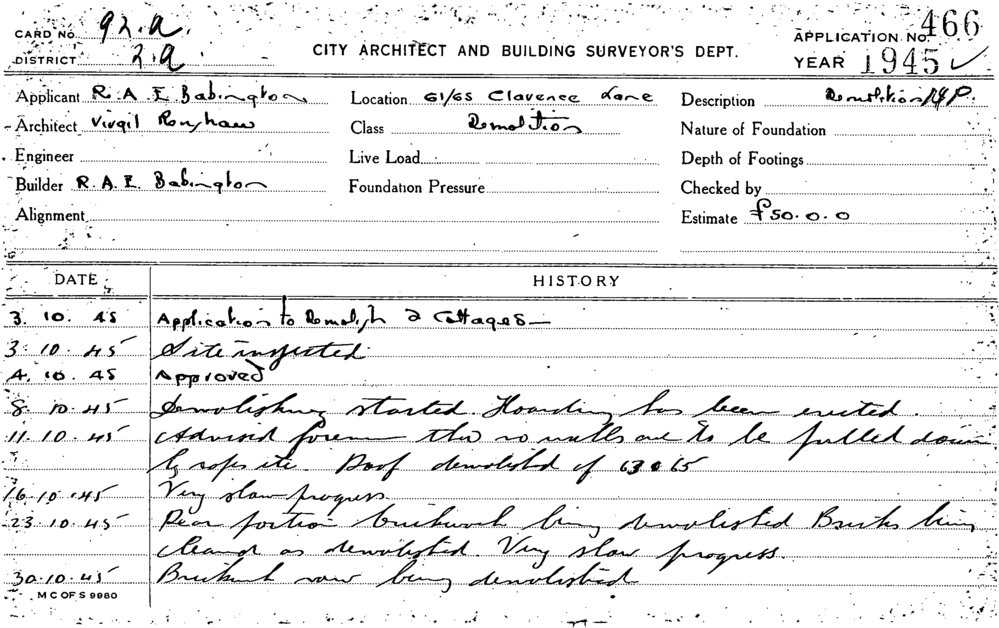 CARD No. 92.A.
DISTRICT 2.A
CITY ARCHITECT AND BUILDING SURVEYOR'S DEPT.
APPLICATION NO. 466
YEAR 1945 ✓
Applicant R.A.E. Babington
Location 61/65 Clarence Lane
Description Demolition
Architect Virgil
Class Demolition
Nature of Foundation
Engineer
Live Load
Depth of Footings
Builder R.A.E. Babington
Foundation Pressure
Checked by
Alignment
Estimate £50.0.0
DATE HISTORY
3. 10. 45 Application to Demolish 2 Cottages
3. 10. 45 Site inspected
4. 10. 45 Approved
8. 10. 45 Demolishing started. Hoarding has been erected.
11. 10. 45 Advised no walls are to be pulled down
Roof demolished of 63 & 65
16. 10. 45 Very slow progress.
23. 10. 45 Rear portion brickwork being demolished Bricks being
cleaned as demolished. Very slow progress.
30. 10. 45 now being demolished
M C OF S 9980